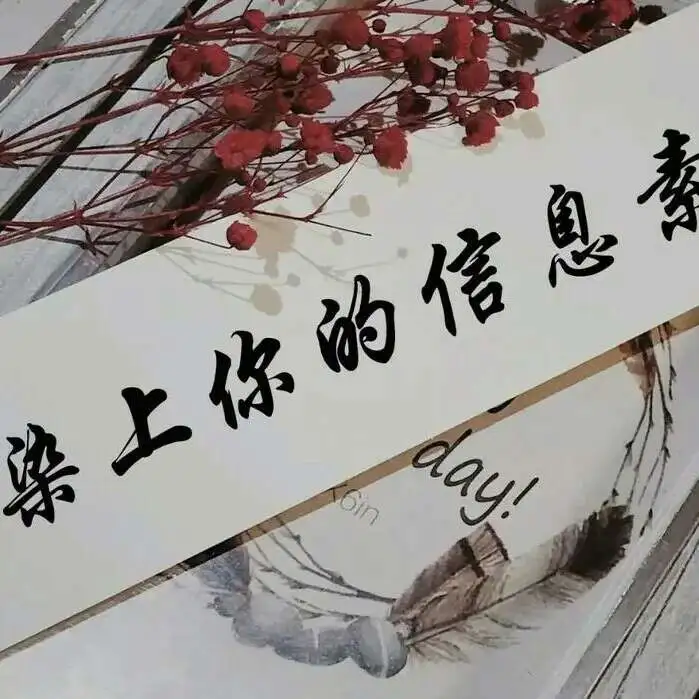 染上你的信息素
day!
x6in